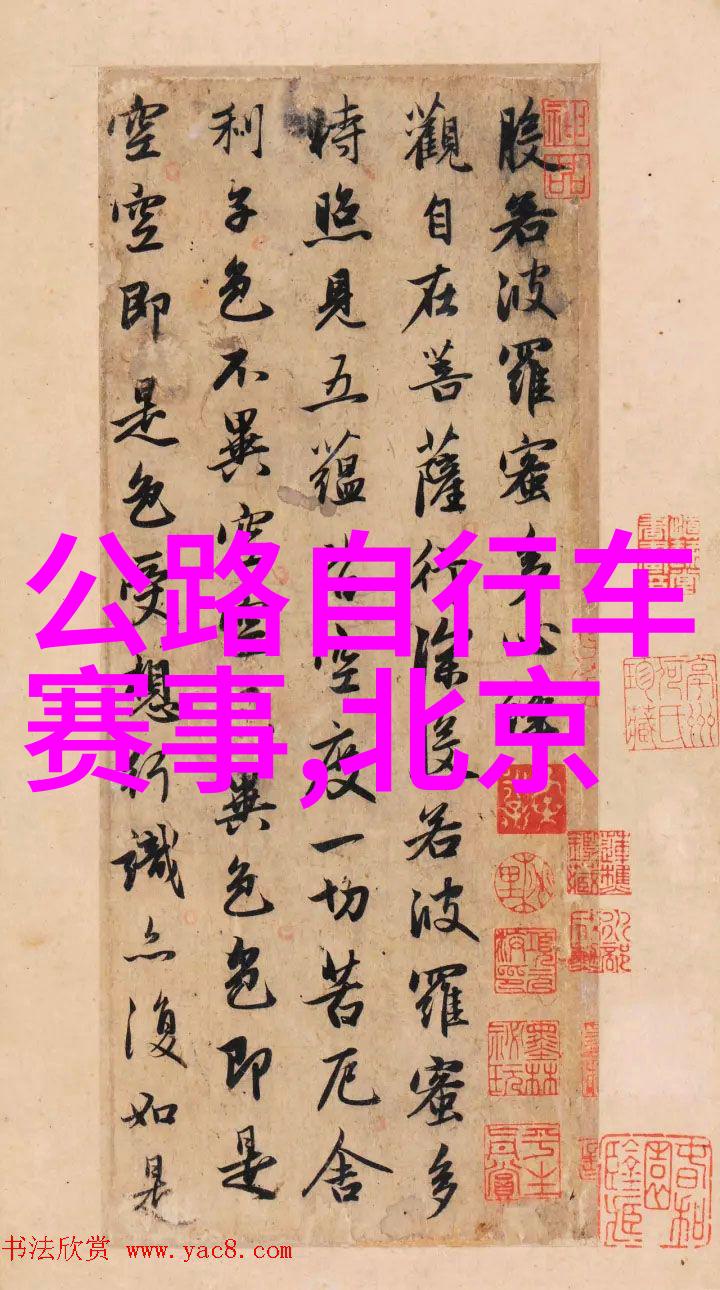 公路自行车
赛事,北京
般若波羅蜜多心經
觀自在菩薩行深般若波羅蜜多
時照見五蘊皆空度一切苦厄舍
利子色不異空空異色色即是
空空即是色受想行識亦復如是
神品
墨林祕玩
书法欣赏 www.yac8.com